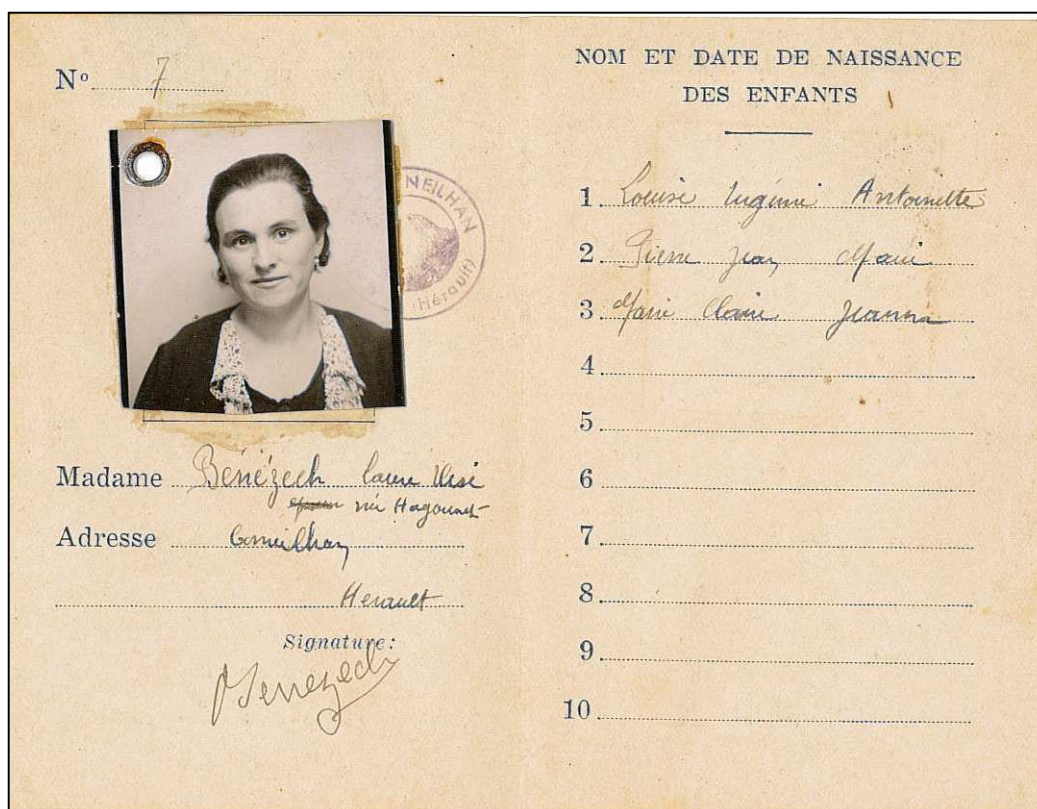 Nº 7
NEILHAN
(Hérault)
Madame Bénézech
née Hagounet
Adresse Corneilhan
Herault
Signature:
Benezech
NOM ET DATE DE NAISSANCE
DES ENFANTS
1 Louise Eugénie Antoinette
2 Pierre Jean Marie
3 Marie Claire Jeanne
4
5
6
7
8
9
10